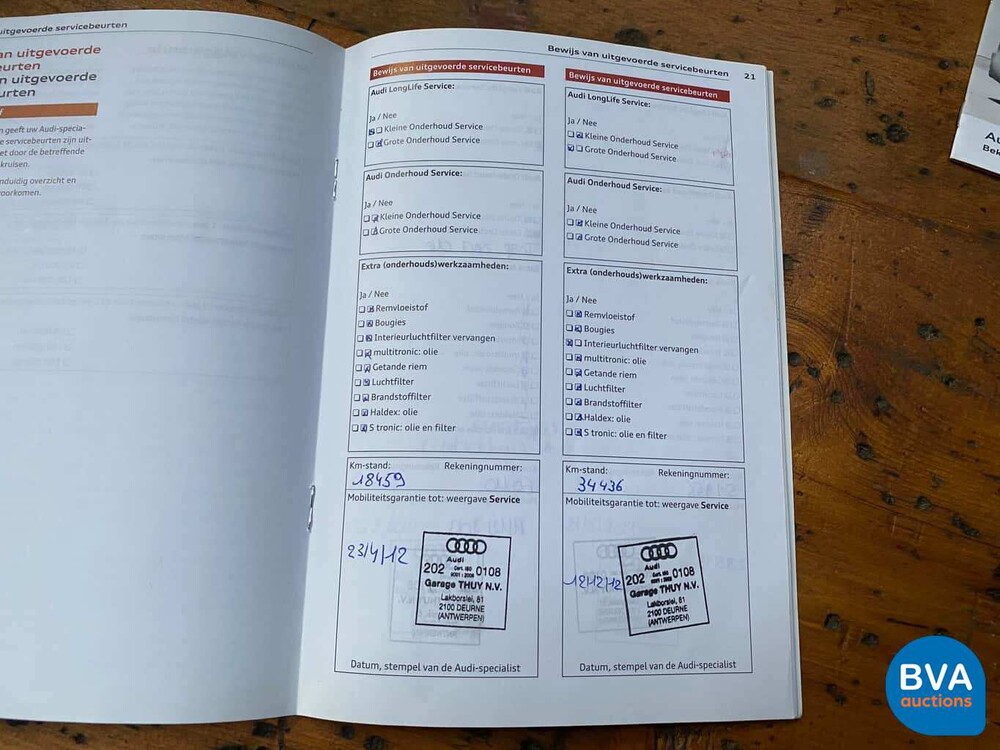 uitgevoerde servicebeurten
an uitgevoerde
eurten
n uitgevoerde
urten
n geeft uw Audi-specia-
e servicebeurten zijn uit-
et door de betreffende
kruisen.
nduidig overzicht en
voorkomen.
Bewijs van uitgevoerde servicebeurten 21
Bewijs van uitgevoerde servicebeurten
Audi LongLife Service:
Ja / Nee
Kleine Onderhoud Service
Grote Onderhoud Service
Audi Onderhoud Service:
Ja / Nee
Kleine Onderhoud Service
Grote Onderhoud Service
Extra (onderhouds)werkzaamheden:
Ja / Nee
Remvloeistof
Bougies
Interieurluchtfilter vervangen
multitronic: olie
Getande riem
Luchtfilter
Brandstoffilter
Haldex: olie
S tronic: olie en filter
Km-stand: Rekeningnummer:
18459
Mobiliteitsgarantie tot: weergave Service
23/4/12
Audi
202 Cert. ISO 9001 : 2008 0108
Garage THUY N.V.
Lakborslei, 81
2100 DEURNE
(ANTWERPEN)
Datum, stempel van de Audi-specialist
Bewijs van uitgevoerde servicebeurten
Audi LongLife Service:
Ja / Nee
Kleine Onderhoud Service
Grote Onderhoud Service
Audi Onderhoud Service:
Ja / Nee
Kleine Onderhoud Service
Grote Onderhoud Service
Extra (onderhouds)werkzaamheden:
Ja / Nee
Remvloeistof
Bougies
Interieurluchtfilter vervangen
multitronic: olie
Getande riem
Luchtfilter
Brandstoffilter
Haldex: olie
S tronic: olie en filter
Km-stand: Rekeningnummer:
34436
Mobiliteitsgarantie tot: weergave Service
12/12/12
Audi
202 Cert. ISO 9001 : 2008 0108
Garage THUY N.V.
Lakborslei, 81
2100 DEURNE
(ANTWERPEN)
Datum, stempel van de Audi-specialist
Au
Bek
BVA
auctions